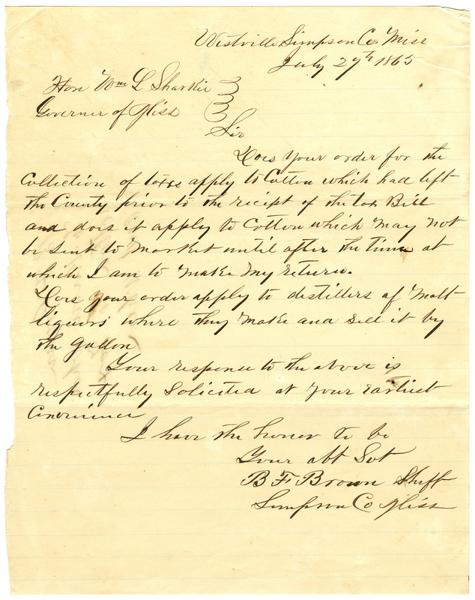 Westville Simpson Co. Miss
July 27th 1865
Hon Wm L Sharkie
Governor of Miss
Sir
Does your order for the
Collection of taxes apply to Cotton which had left
the County prior to the receipt of the tax Bill
and does it apply to Cotton which may not
be sent to Market until after the time at
which I am to make my return.
Does your order apply to distillers of Malt
liquors where they make and sell it by
the gallon
Your response to the above is
respectfully solicited at your earliest
convenience
I have the honor to be
Your obt Svt
B F Brown Shff
Simpson Co Miss